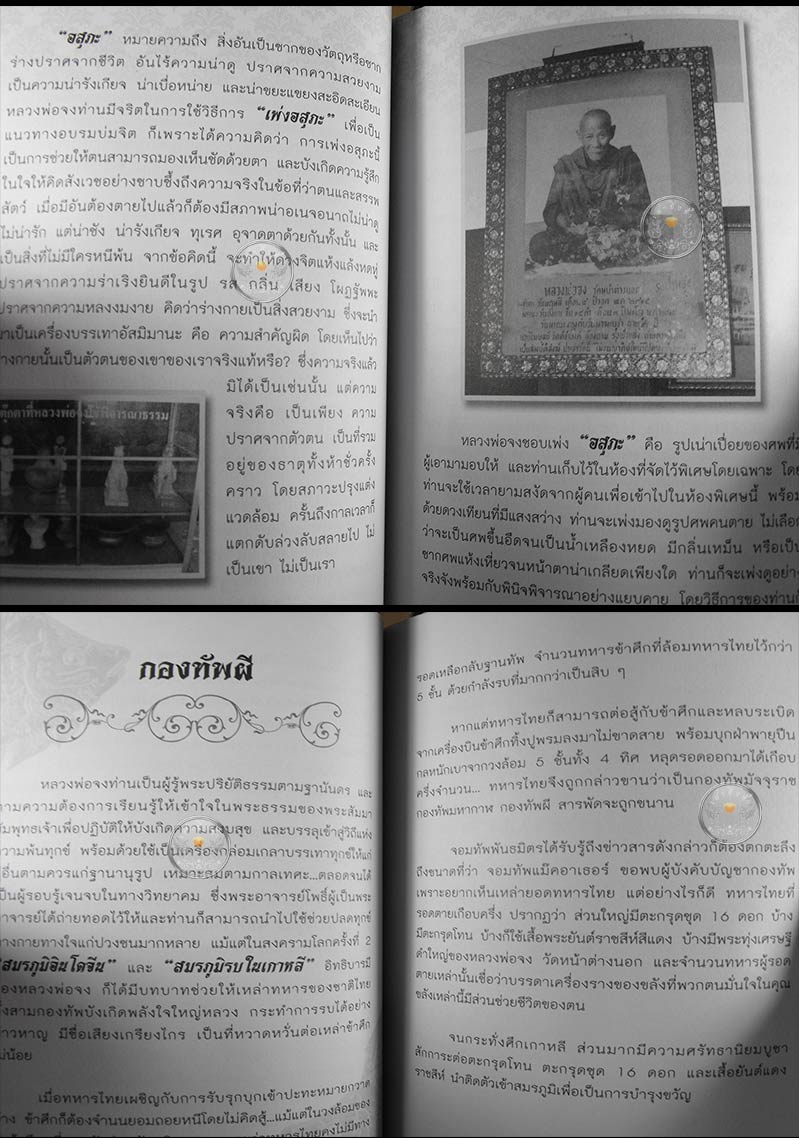 “อสุภะ” หมายความถึง สิ่งอันเป็นซากของวัตถุหรือซาก
ร่างปราศจากชีวิต อันไร้ความน่าดู ปราศจากความสวยงาม
เป็นความน่ารังเกียจ น่าเบื่อหน่าย และน่าขยะแขยงสะอิดสะเอียน
หลวงพ่อจงท่านมีจริตในการใช้วิธีการ “เพ่งอสุภะ” เพื่อเป็น
แนวทางอบรมบ่มจิต ก็เพราะได้ความคิดว่า การเพ่งอสุภะนี้
เป็นการช่วยให้ตนสามารถมองเห็นชัดด้วยตา และบังเกิดความรู้สึก
ในใจให้คิดสังเวชอย่างซาบซึ้งถึงความจริงในข้อที่ว่าตนและสรรพ
สัตว์ เมื่อมีอันต้องตายไปแล้วก็ต้องมีสภาพน่าอเนจอนาถไม่น่าดู
ไม่น่ารัก แต่น่าชัง น่ารังเกียจ ทุเรศ อุจาดตาด้วยกันทั้งนั้น และ
เป็นสิ่งที่ไม่มีใครหนีพ้น จากข้อคิดนี้ จะทำให้ดวงจิตแห้งแล้งหดหู่
ปราศจากความร่าเริงยินดีในรูป รส กลิ่น เสียง โผฏฐัพพะ
ปราศจากความหลงงมงาย คิดว่าร่างกายเป็นสิ่งสวยงาม ซึ่งจะนำ
มาเป็นเครื่องบรรเทาอัสมิมานะ คือ ความสำคัญผิด โดยเห็นไปว่า
ร่างกายนั้นเป็นตัวตนของเขาของเราจริงแท้หรือ? ซึ่งความจริงแล้ว
มิได้เป็นเช่นนั้น แต่ความ
จริงคือ เป็นเพียง ความ
ปราศจากตัวตน เป็นที่รวม
อยู่ของธาตุทั้งห้าชั่วครั้ง
คราว โดยสภาวะปรุงแต่ง
แวดล้อม ครั้นถึงกาลเวลาก็
แตกดับล่วงลับสลายไป ไม่
เป็นเขา ไม่เป็นเรา
ตุ๊กตาที่หลวงพ่อจงใช้พิจารณาธรรม
หลวงพ่อจง
หลวงพ่อจงชอบเพ่ง “อสุภะ” คือ รูปเน่าเปื่อยของศพที่มี
ผู้เอามามอบให้ และท่านเก็บไว้ในห้องที่จัดไว้พิเศษโดยเฉพาะ โดย
ท่านจะใช้เวลายามสงัดจากผู้คนเพื่อเข้าไปในห้องพิเศษนี้ พร้อม
ด้วยดวงเทียนที่มีแสงสว่าง ท่านจะเพ่งมองดูรูปศพคนตาย ไม่เลือก
ว่าจะเป็นศพขึ้นอืดจนเป็นน้ำเหลืองหยด มีกลิ่นเหม็น หรือเป็น
ซากศพแห้งเหี่ยวจนหน้าตาน่าเกลียดเพียงใด ท่านก็จะเพ่งดูอย่าง
จริงจังพร้อมกับพินิจพิจารณาอย่างแยบคาย โดยวิธีการของท่านก็
กองทัพผี
หลวงพ่อจงท่านเป็นผู้รู้พระปริยัติธรรมตามฐานันดร และ
ตามความต้องการเรียนรู้ให้เข้าใจในพระธรรมของพระสัมมา
สัมพุทธเจ้าเพื่อปฏิบัติให้บังเกิดความสงบสุข และบรรลุเข้าสู่วิถีแห่ง
ความพ้นทุกข์ พร้อมด้วยใช้เป็นเครื่องกล่อมเกลาบรรเทาทุกข์ให้แก่
ผู้อื่นตามควรแก่ฐานานุรูป เหมาะสมตามกาลเทศะ...ตลอดจนได้
เป็นผู้รอบรู้เจนจบในทางวิทยาคม ซึ่งพระอาจารย์โพธิ์ผู้เป็นพระ
อาจารย์ได้ถ่ายทอดไว้ให้และท่านก็สามารถนำไปใช้ช่วยปลดทุกข์
ทางกายทางใจแก่ปวงชนมากหลาย แม้แต่ในสงครามโลกครั้งที่ 2
“สมรภูมิอินโดจีน” และ “สมรภูมิรบในเกาหลี” อิทธิบารมี
ของหลวงพ่อจง ก็ได้มีบทบาทช่วยให้เหล่าทหารของชาติไทย
ทั้งสามกองทัพบังเกิดพลังใจใหญ่หลวง กระทำการรบได้อย่าง
ห้าวหาญ มีชื่อเสียงเกรียงไกร เป็นที่หวาดหวั่นต่อเหล่าข้าศึก
ไม่น้อย
เมื่อทหารไทยเผชิญกับการรับรุกบุกเข้าปะทะหมายกวาด
ล้าง ข้าศึกก็ต้องจำนนยอมถอยหนีโดยไม่คิดสู้...แม้แต่ในวงล้อมของ
ทหารไทยคงไม่มีทาง
รอดเหลือกลับฐานทัพ จำนวนทหารข้าศึกที่ล้อมทหารไทยไว้กว่า
5 ชั้น ด้วยกำลังรบที่มากกว่าเป็นสิบ ๆ
หากแต่ทหารไทยก็สามารถต่อสู้กับข้าศึกและหลบระเบิด
จากเครื่องบินข้าศึกทิ้งปูพรมลงมาไม่ขาดสาย พร้อมบุกฝ่าพายุปืน
กลหนักเบาจากวงล้อม 5 ชั้นทั้ง 4 ทิศ หลุดรอดออกมาได้เกือบ
ครึ่งจำนวน... ทหารไทยจึงถูกกล่าวขานว่าเป็นกองทัพมัจจุราช
กองทัพมหากาฬ กองทัพผี สารพัดจะถูกขนาน
จอมทัพพันธมิตรได้รับรู้ถึงข่าวสารดังกล่าวก็ต้องตกตะลึง
ถึงขนาดที่ว่า จอมทัพแม๊คอาเธอร์ ขอพบผู้บังคับบัญชากองทัพ
เพราะอยากเห็นเหล่ายอดทหารไทย แต่อย่างไรก็ดี ทหารไทยที่
รอดตายเกือบครึ่ง ปรากฏว่า ส่วนใหญ่มีตะกรุดชุด 16 ดอก บ้าง
มีตะกรุดโทน บ้างก็ใช้เสื้อพระยันต์ราชสีห์สีแดง บ้างมีพระทุ่งเศรษฐี
ดำใหญ่ของหลวงพ่อจง วัดหน้าต่างนอก และจำนวนทหารผู้รอด
ตายเหล่านั้นเชื่อว่าบรรดาเครื่องรางของขลังที่พวกตนมั่นใจในคุณ
ขลังเหล่านี้มีส่วนช่วยชีวิตของตน
จนกระทั่งศึกเกาหลี ส่วนมากมีความศรัทธานิยมบูชา
สักการะต่อตะกรุดโทน ตะกรุดชุด 16 ดอก และเสื้อยันต์แดง
ราชสีห์ นำติดตัวเข้าสมรภูมิเพื่อเป็นการบำรุงขวัญ